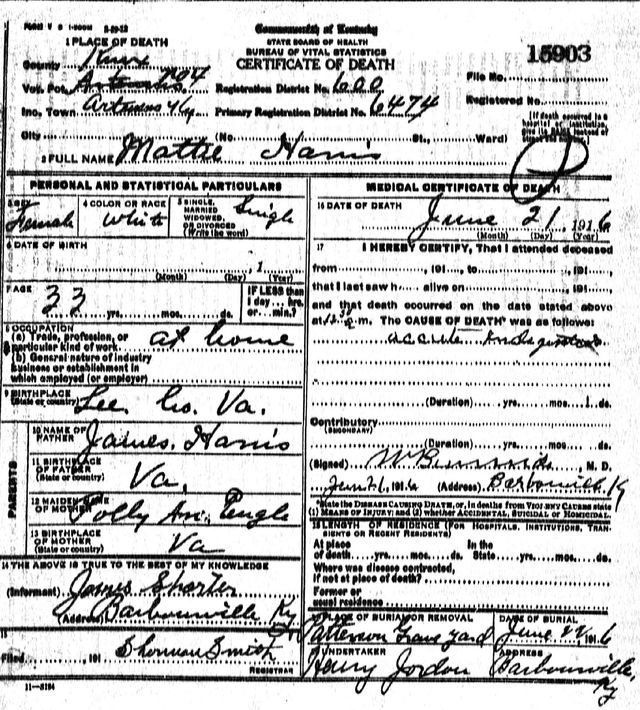 FORM V S 1-500M 5-29-13
Commonwealth of Kentucky
STATE BOARD OF HEALTH
BUREAU OF VITAL STATISTICS
CERTIFICATE OF DEATH
15903
1 PLACE OF DEATH
County Knox
Vot. Pct. Artemus No 4
Inc. Town Artemus Ky
City (No St., Ward)
Registration District No. 600
Primary Registration District No. 6474
File No.
Registered No.
[If death occurred in a hospital or institution, give its NAME instead of street and number.]
2 FULL NAME Mattie Harris
PERSONAL AND STATISTICAL PARTICULARS
3 SEX Female
4 COLOR OR RACE White
5 SINGLE, MARRIED WIDOWED, OR DIVORCED (Write the word) Single
6 DATE OF BIRTH
(Month) (Day) 1 (Year)
7 AGE 33 yrs. mos. ds.
IF LESS than 1 day... hrs. or... min.?
8 OCCUPATION
(a) Trade, profession, or particular kind of work at home
(b) General nature of industry business or establishment in which employed (or employer)
9 BIRTHPLACE (State or country) Lee Co. Va.
PARENTS
10 NAME OF FATHER James Harris
11 BIRTHPLACE OF FATHER (State or country) Va.
12 MAIDEN NAME OF MOTHER Polly An
13 BIRTHPLACE OF MOTHER (State or country) Va
14 THE ABOVE IS TRUE TO THE BEST OF MY KNOWLEDGE
(Informant) James
(Address) Barbourville Ky
15
Filed 191 Sherman Smith
REGISTRAR
11-5194
MEDICAL CERTIFICATE OF DEATH
16 DATE OF DEATH
June 21, 1916
(Month) (Day) (Year)
17 I HEREBY CERTIFY, That I attended deceased
from 191 , to , 191 ,
that I last saw h alive on , 191 ,
and that death occurred on the date stated above
at m. The CAUSE OF DEATH* was as follows:
acute indigestion
(Duration) yrs. mos. 1 ds.
Contributory
(SECONDARY)
(Duration) yrs. mos. ds.
(Signed) M. D.
June 21, 1916 (Address) Barbourville Ky
*State the DISEASE CAUSING DEATH, or, in deaths from VIOLENT CAUSES state (1) MEANS OF INJURY; and (2) whether ACCIDENTAL, SUICIDAL or HOMICIDAL.
18 LENGTH OF RESIDENCE (FOR HOSPITALS, INSTITUTIONS, TRANSIENTS OR RECENT RESIDENTS)
At place of death yrs. mos. ds. In the State yrs. mos. ds.
Where was disease contracted,
If not at place of death?
Former or usual residence
19 PLACE OF BURIAL OR REMOVAL Patterson Grave yard
DATE OF BURIAL June 22 1916
20 UNDERTAKER Henry Jordon Barbourville, Ky